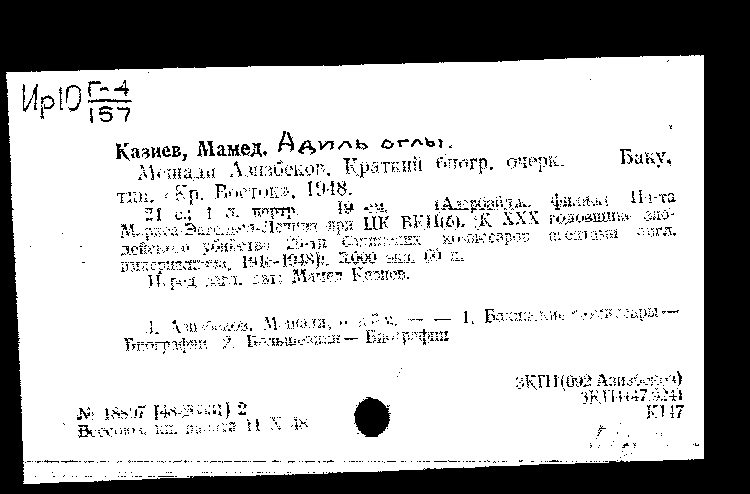 Ир10 Г-4
157
Казиев, Мамед. Адиль оглы.
Мешади Азизбеков. Краткий биогр. очерк. Баку,
тип. «Кр. Восток», 1948.
21 с.; 1 л. портр. 19 см. (Азербайдж. филиал Ин-та
Маркса-Энгельса-Ленина при ЦК ВКП(б). (К XXX годовщине зло-
дейского убийства 26-ти Бакинских комиссаров агентами англ.
империализма, 1918-1948). 3.000 экз. 60 к.
Перед загл. авт.: Мамед Казиев.
1. Азизбеков, Мешади, — — 1. Бакинские комиссары —
Биографии 2. Большевики — Биографии
3КП1(092 Азизбеков)
К147
№ 18897 2
Всесоюзн. кн. палата 11 X 48